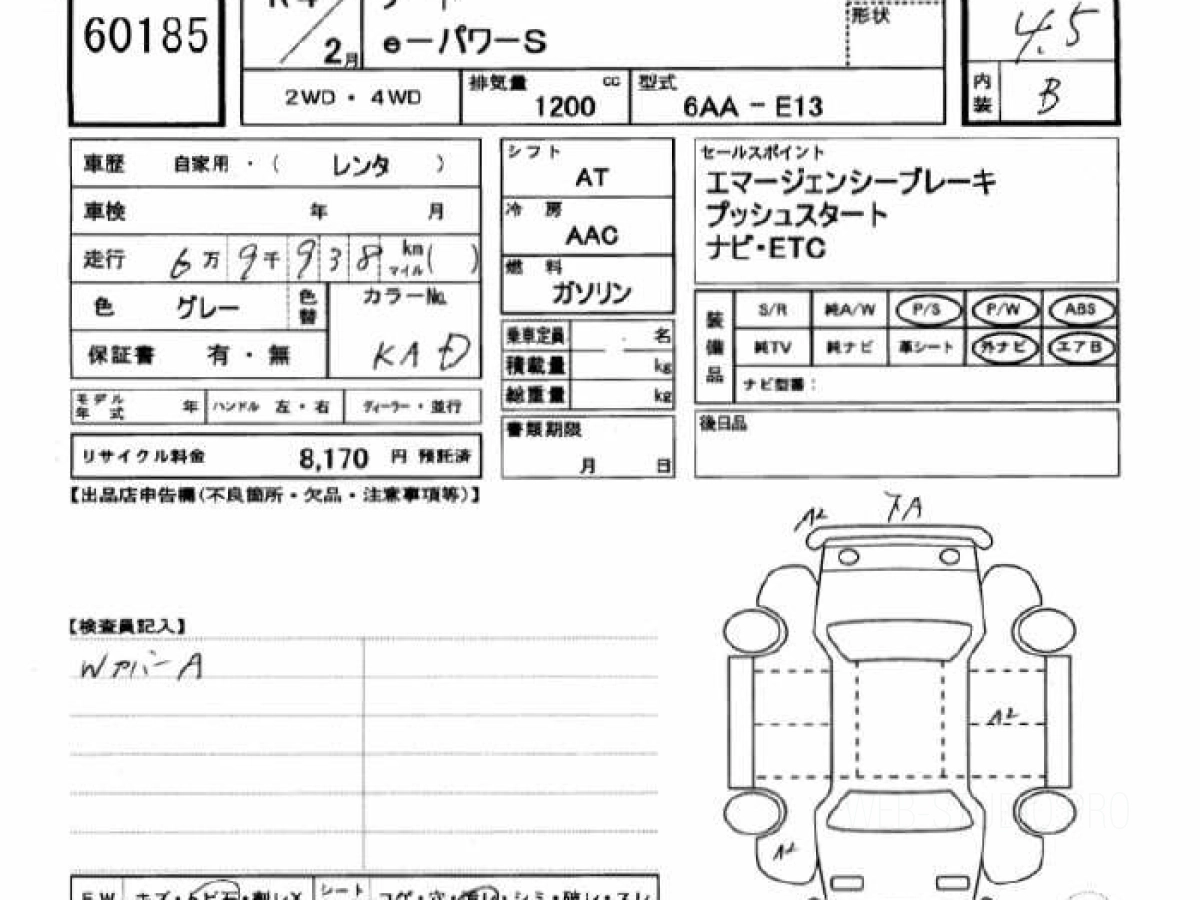 60185
R4
2月
e-パワーS
形状
4.5
2WD・4WD
排気量 cc
1200
型式
6AA - E13
内装
B
車歴 自家用・( レンタ )
車検 年 月
走行 6万9千938 km マイル( )
色 グレー
色替
カラーNo.
KAD
保証書 有・無
モデル年式 年
ハンドル 左・右
ディーラー・並行
リサイクル料金 8,170 円 預託済
シフト
AT
冷房
AAC
燃料
ガソリン
乗車定員 名
積載量 kg
総重量 kg
書類期限
月 日
セールスポイント
エマージェンシーブレーキ
プッシュスタート
ナビ・ETC
装備品
S/R 純A/W P/S P/W ABS
純TV 純ナビ 革シート 外ナビ エアB
ナビ型番:
後日品
【出品店申告欄(不良箇所・欠品・注意事項等)】
A2
A
【検査員記入】
WカバーA
A2
A2
FW キズ・トビ石・削レX
シート コゲ・穴・汚レ・シミ・破レ・スレ